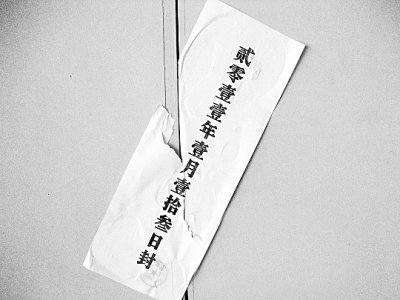 贰零壹壹年壹月壹拾叁日封